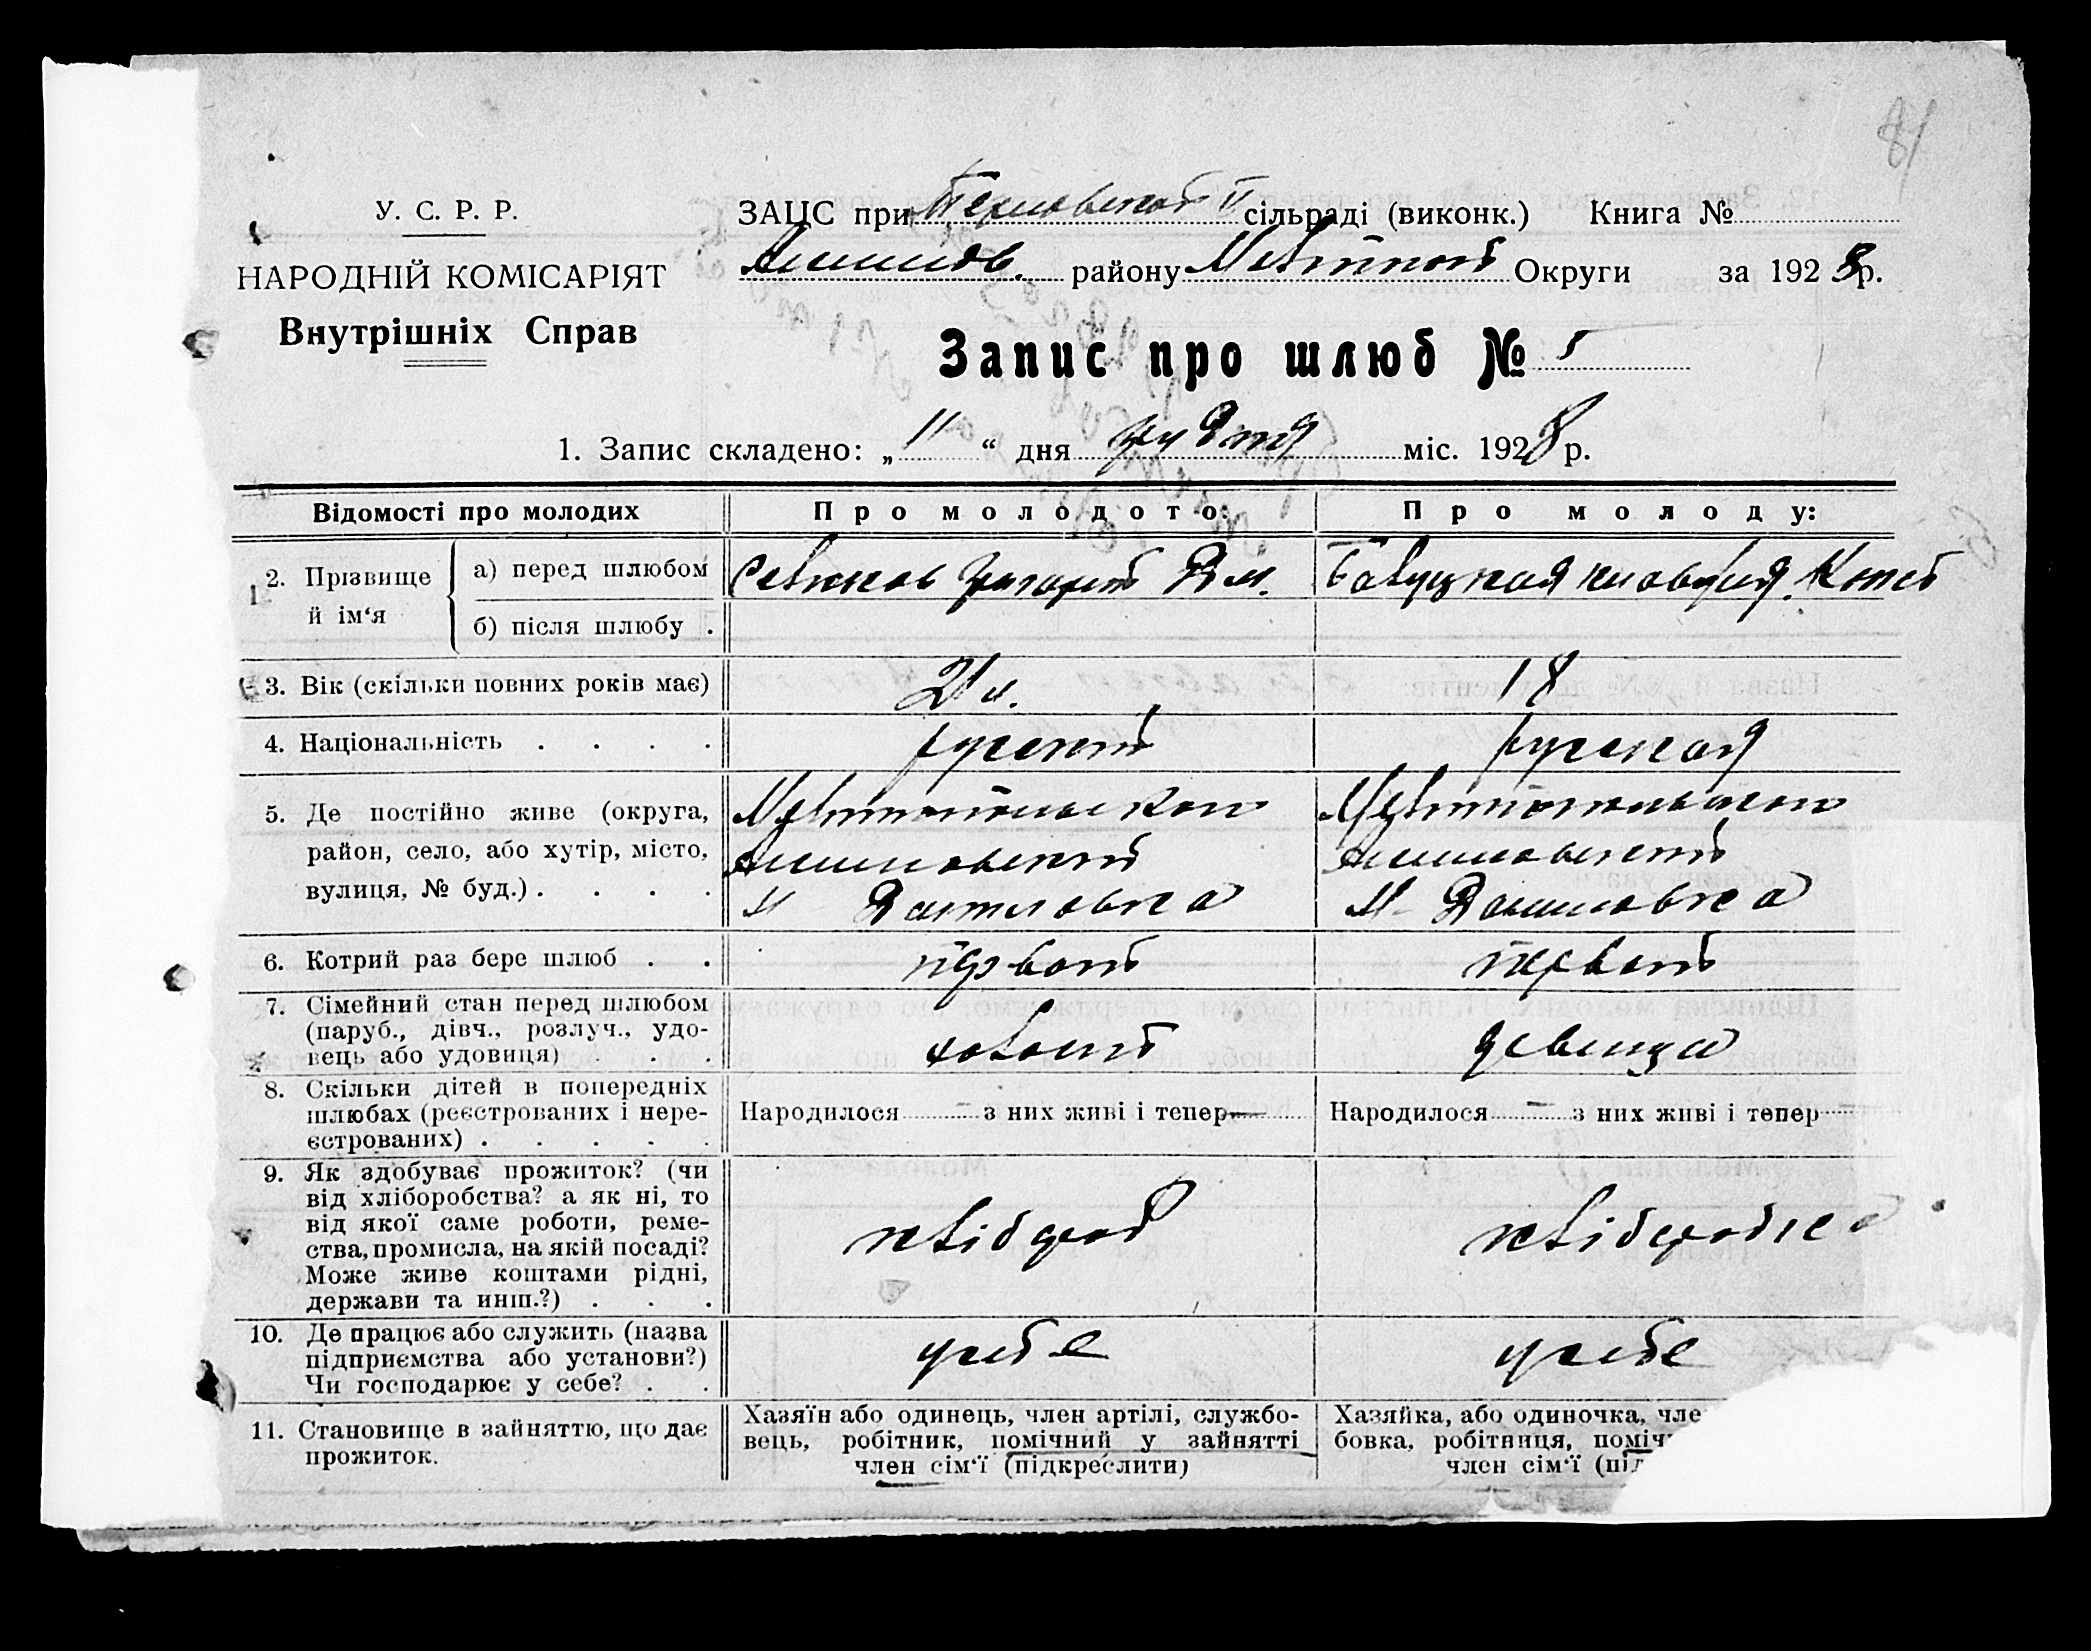 81
У. С. Р. Р.
НАРОДНІЙ КОМІСАРІЯТ
Внутрішніх Справ
ЗАЦС при сільраді (виконк.) Книга №
Якимов. району Мелітоп Округи за 1928 р.
Запис про шлюб №
1. Запис складено: „ 11 “ дня грудня міс. 1928 р.
Відомості про молодих Про молодого: Про молоду:
2. Прізвище й ім‘я
а) перед шлюбом Григорій Дм.
б) після шлюбу .
3. Вік (скільки повних років має) 21 18
4. Національність . . . . русский русская
5. Де постійно живе (округа, район, село, або хутір, місто, вулиця, № буд.) . . . .
Мелитопольской
Акимовский
М Даниловка
Мелитопольской
Акимовский
М- Даниловка
6. Котрий раз бере шлюб . . первый первый
7. Сімейний стан перед шлюбом
(паруб., дівч., розлуч., удо-
вець або удовиця) . . . холост девица
8. Скільки дітей в попередніх
шлюбах (реєстрованих і нере-
єстрованих) . . . . .
Народилося – з них живі і тепер — Народилося – з них живі і тепер
9. Як здобуває прожиток? (чи
від хліборобства? а як ні, то
від якої саме роботи, реме-
ства, промисла, на якій посаді?
Може живе коштами рідні,
держави та инш.?) . . .
хлібороб хліборобка
10. Де працює або служить (назва
підприємства або установи?)
Чи господарює у себе? . .
у себе у себе
11. Становище в зайняттю, що дає
прожиток.
Хазяїн або одинець, член артілі, службо-
вець, робітник, помічний у зайнятті
член сім‘ї (підкреслити)
Хазяйка, або одиночка, чле
бовка, робітниця, поміч
член сім‘ї (під